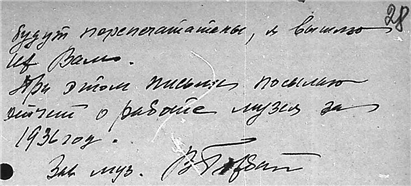 28
будут перепечатаны, я вышлю
их Вам.
При этом письме посылаю
отчет о работе музея за
1936 год.
Зав муз.